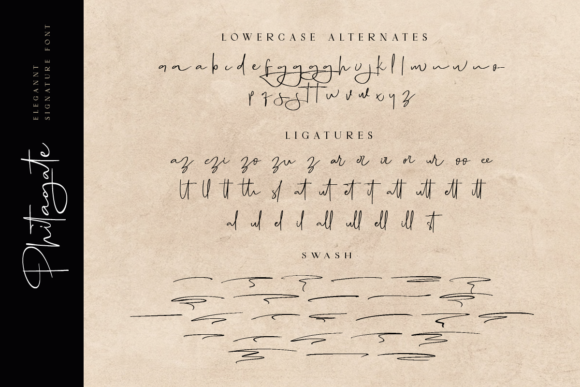 ELEGANNT
SIGNATURE FONT
Phitagate
LOWERCASE ALTERNATES
a a a b c d e f g g g g h u j k l l m n w n o
p z s s t t w v w x y z
LIGATURES
az ezi zo zu z ar er ir or ur oo ee
lt ll tt th sf at ut et it att utt ett itt
al ul el il all ull ell ill st
SWASH